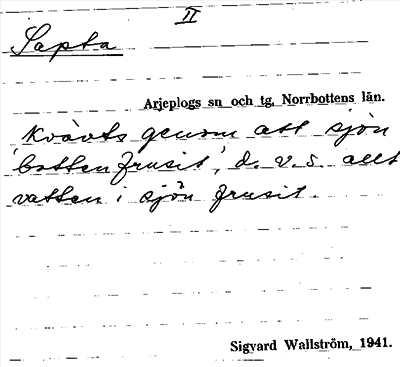 II
Sapta
Arjeplogs sn och tg, Norrbottens län.
Kvävts genom att sjön
'bottenfrusit', d. v. s. allt
vatten i sjön frusit.
Sigvard Wallström, 1941.